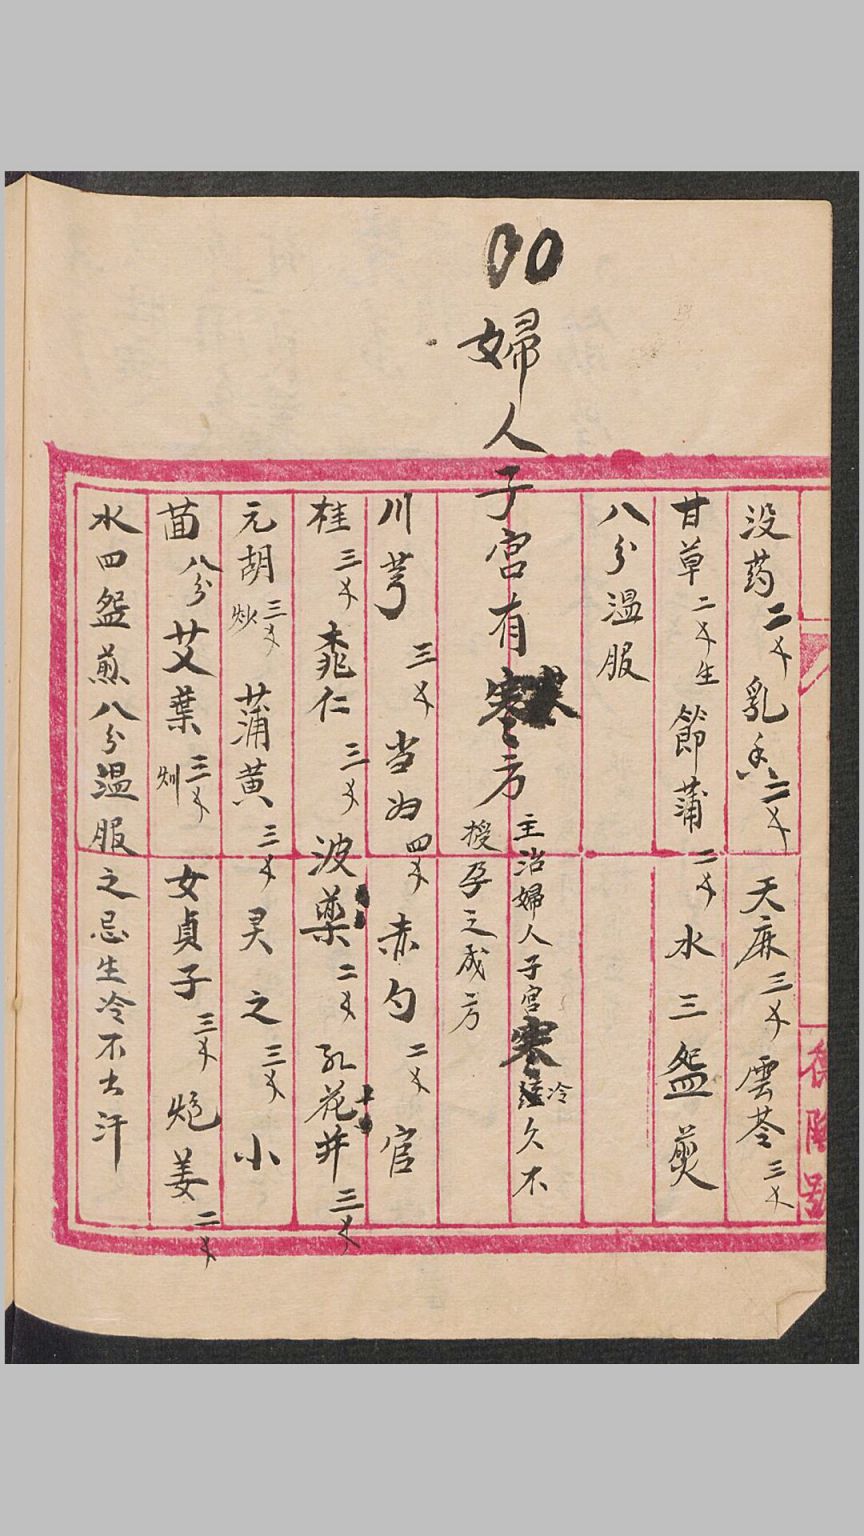 没药二钱 乳香二钱 天麻三钱 雲苓三钱
甘草二钱生 節蒲二钱 水三盌煎
八分温服
婦人子宮有寒之方 主治婦人子宮寒冷久不
授孕之成方
川芎三钱 当归四钱 赤勺二钱 官
桂三钱 桃仁三钱 波藥二钱 孔花井三钱
元胡三钱炒 蒲黄三钱 灵之三钱 小
茴八分 艾葉三钱 女貞子三钱 炮姜二钱
水四盌煎八分温服之忌生冷不去汗